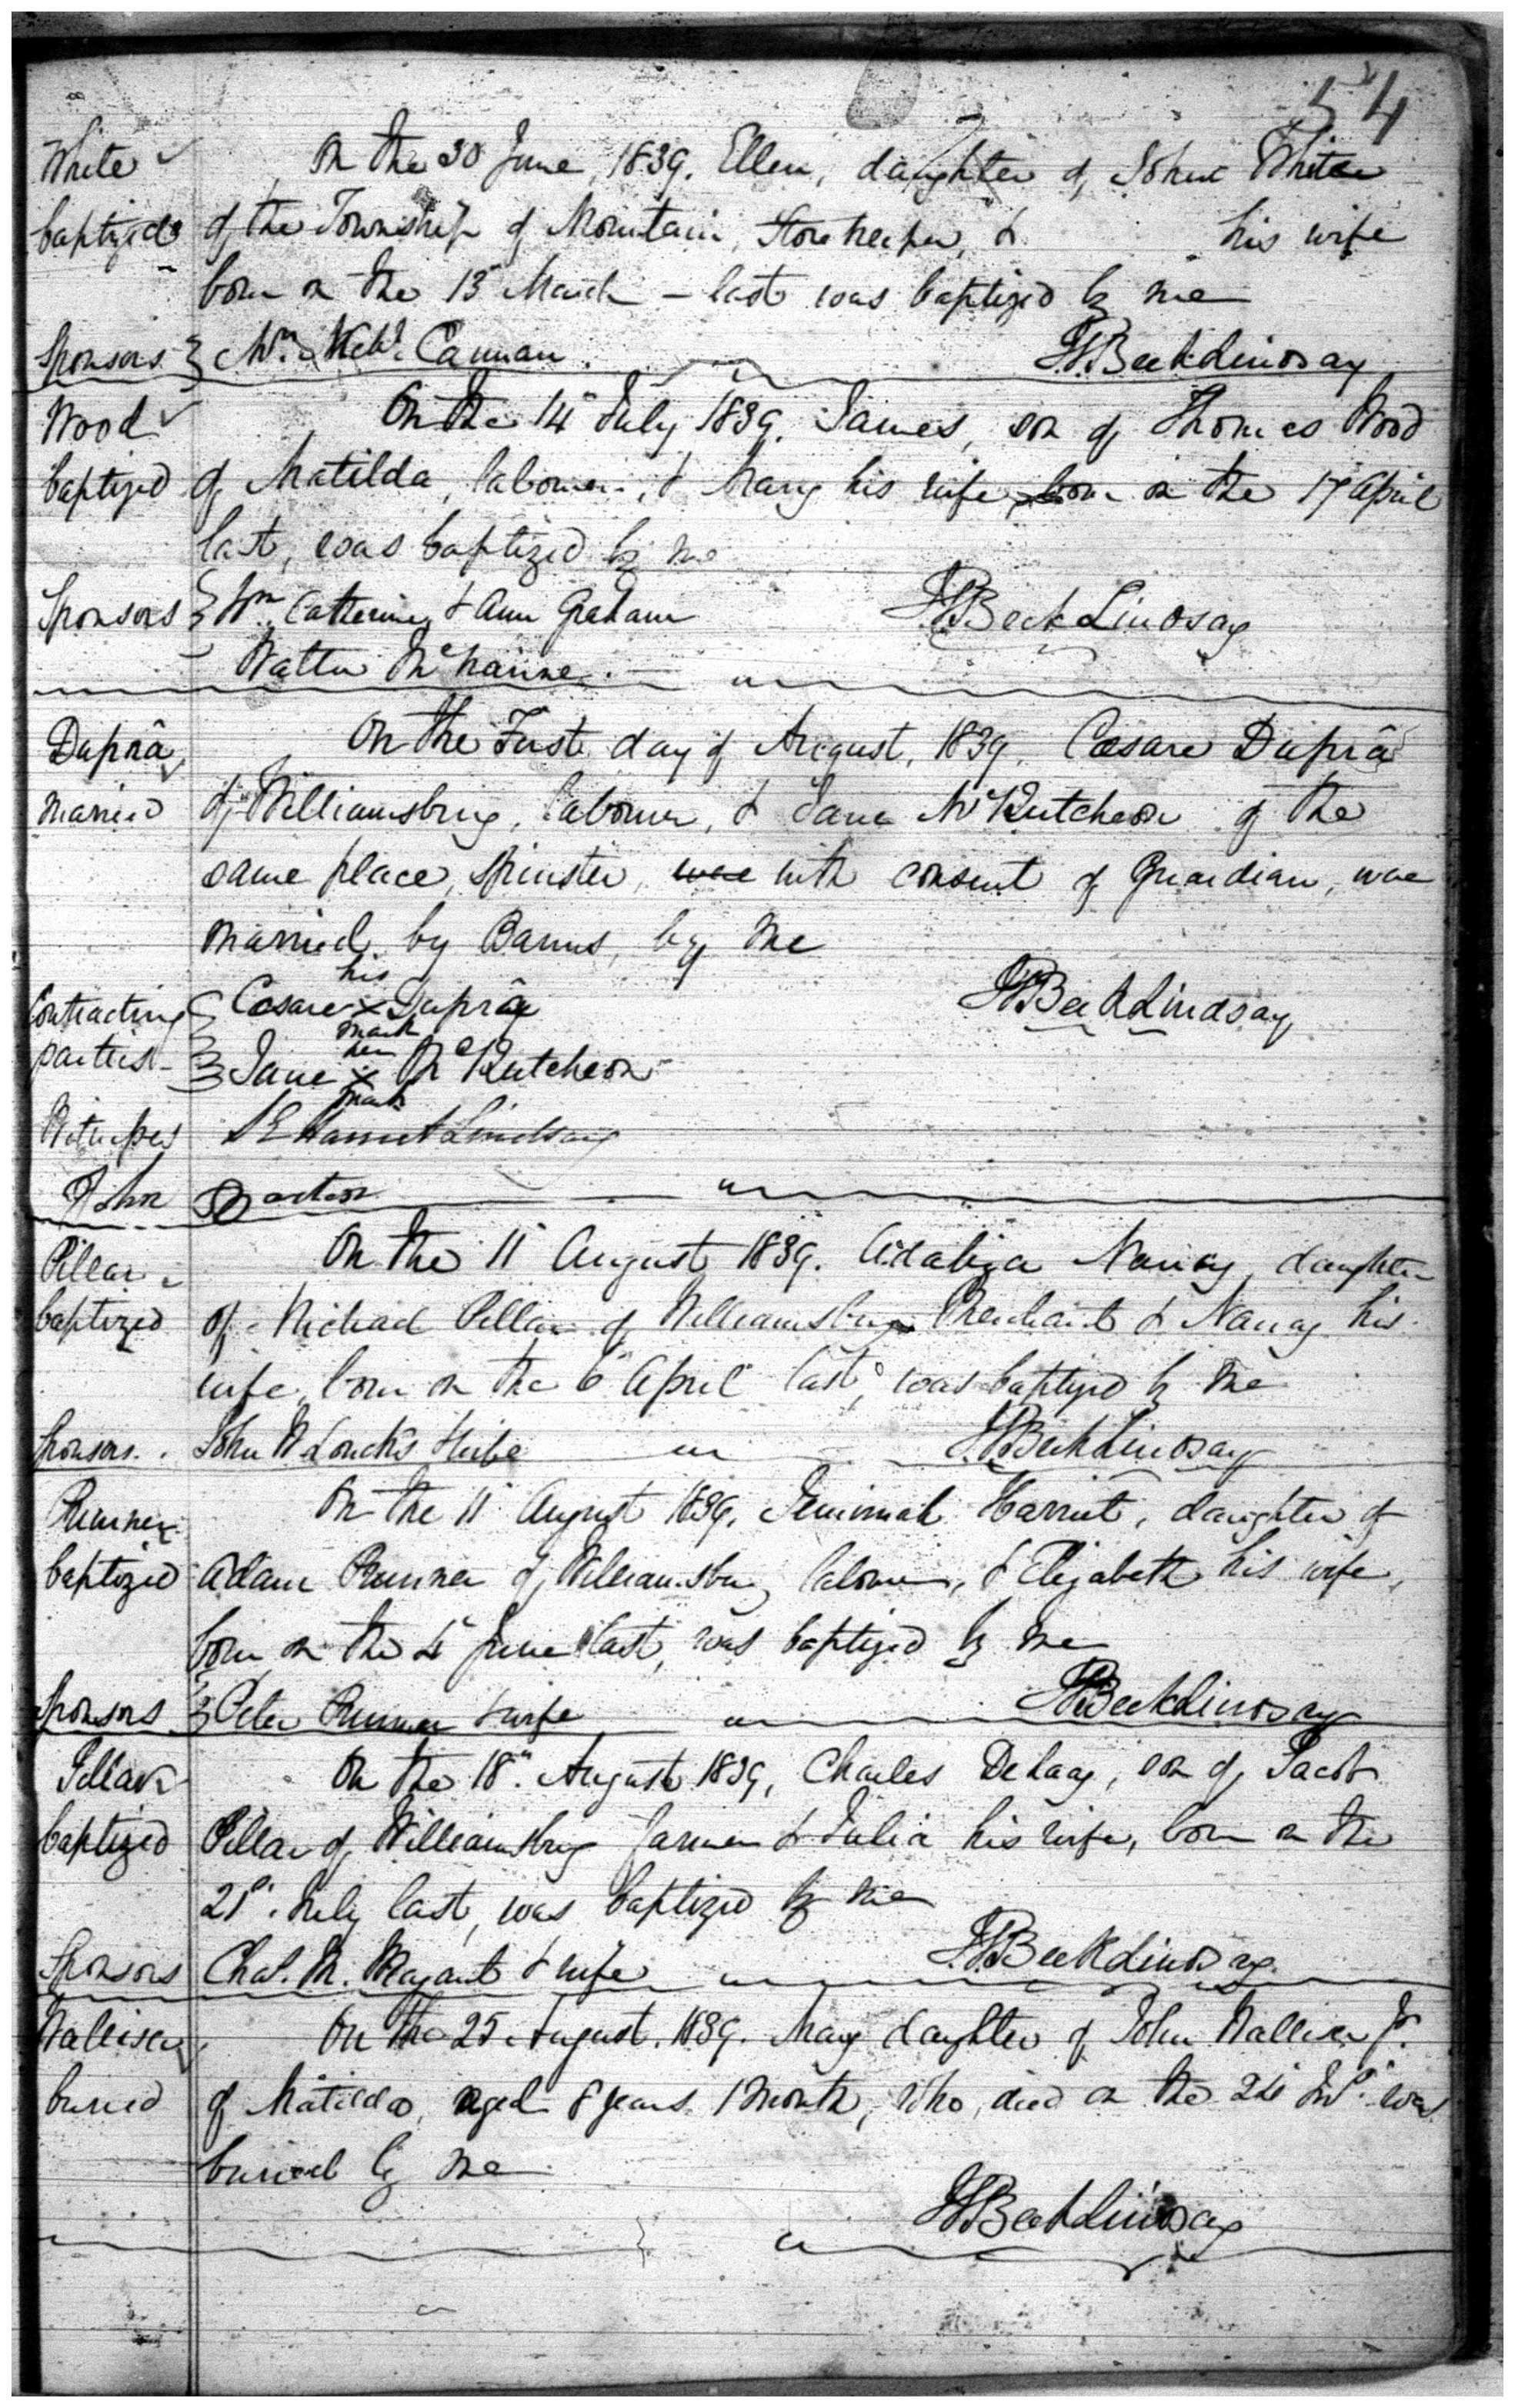 54
White On the 30 June, 1839. Ellen, daughter of John White
baptized of the Township of Mountain, Storekeeper, & his wife
born on the 13 March - last was baptized by me
Sponsors Cannan. J.G. Beek Lindsay
Wood On the 14 July 1839. James, son of Thomas Wood
baptized of Matilda, labourer, & Mary his wife, born on the 17 April
last, was baptized by me
Sponsors Wm. Catherine & Ann Graham J.G. Beek Lindsay
Walter
Duprâ On the First day of August, 1839. Cæsare Duprâ
married of Williamsburg, labourer, & Jane McKutcheon of the
same place, Spinster, was with consent of Guardian, was
married by Banns, by me
his
Contracting Cæsare x Duprâ J.G. Beek Lindsay
mark
her
parties - Jane x McKutcheon
mark
Witnesses Harriet Lindsay
John
Pillar On the 11 August 1839. Adaliza Nancy, daughter
baptized of Michael Pillar of Williamsburg Merchant & Nancy his
wife, born on the 6 April last, was baptized by me
Sponsors. John W Loucks & wife J.G. Beek Lindsay
Prunner On the 11 August 1839. Jemimah Harriet, daughter of
baptized Adam Prunner of Williamsburg labourer, & Elizabeth his wife,
born on the 4 June last, was baptized by me
Sponsors Peter Prunner & wife J.G. Beek Lindsay
Pillar On the 18. August 1839, Charles Delaay, son of Jacob
baptized Pillar of Williamsburg farmer & Julia his wife, born on the
21st. July last, was baptized by me
Sponsors Chas. & wife J.G. Beek Lindsay
Walliser On the 25 August. 1839. Mary daughter of John Walliser Jr.
buried of Matilda, aged 8 years 1 month, who, died on the 24 Inst. was
buried by me
J.G. Beek Lindsay